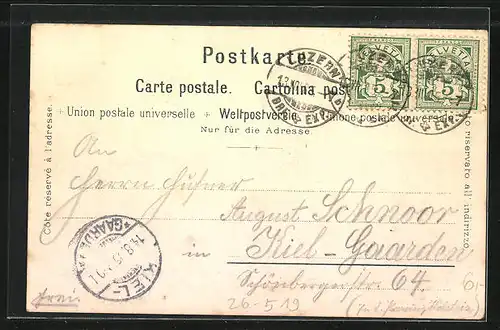 Postkarte.
Carte postale. Cartolina post
Union postale universelle + Weltpostverein + Unione postale universale
Nur für die Adresse.
Côte réservé à l'adresse.
Lato riservato all indirizzo.
HELVETIA
5
HELVETIA
5
LUZERN
EXP.
An
Herrn Hufner
August Schnoor
in Kiel-Gaarden
Schönbergerstr 64.
KIEL-
GAARDEN
frei
26-5 19